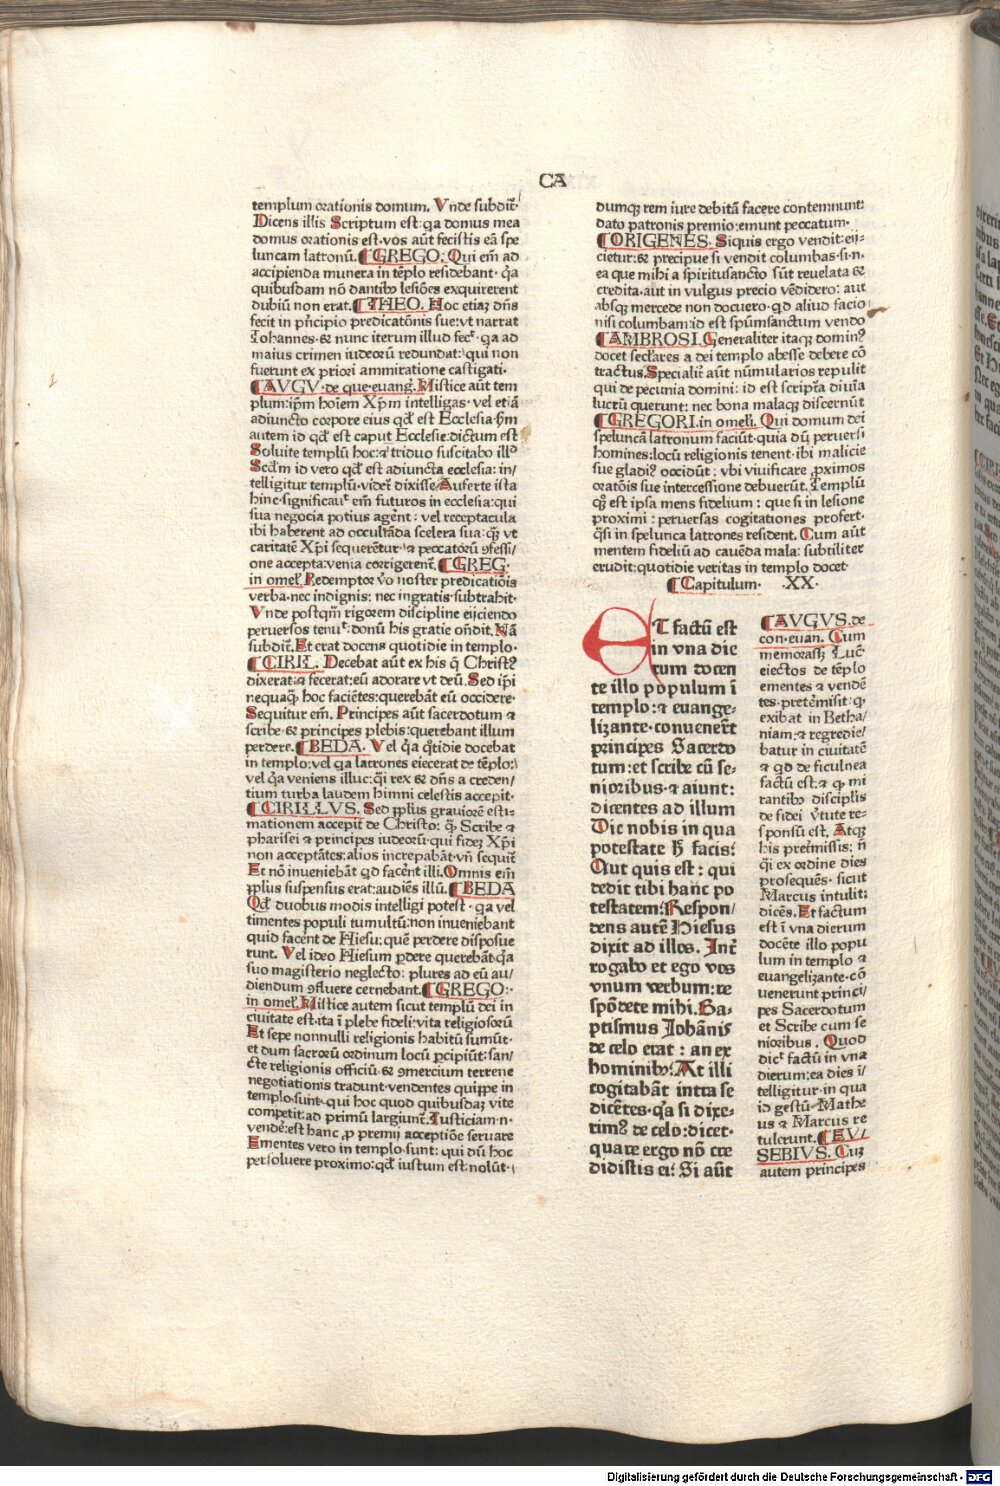 CA
templum orationis domum. Vnde subdit̄:
Dicens illis Scriptum est: qa domus mea
domus orationis est. vos aūt fecistis eā spe
luncam latronū. GREGO. Qui em̄ ad
accipienda munera in tēplo residebant. q̄a
quibusdam nō dantibꝰ lesiōes exquirerent
dubiū non erat. THEO. Hoc etiaꝫ dn̄s
fecit in pͥncipio predicatōnis sue: vt narrat
Iohannes. & nunc iterum illud fecᷣ. qa ad
maius crimen iudeorū redundat: qui non
fuerunt ex priori ammiratione castigati.
AVGV. de que. euang̅. Mistice aūt tem
plum: ip̄m hoīem Xp̄m intelligas. vel etiā
adiuncto corpore eius qd̄ est Ecclesia. Hm̄
autem id qd̄ est caput Ecclesie: dictum est
Soluite templū hoc: ⁊ triduo suscitabo illᵈ
Scd̄m id vero qd̄ est adiuncta ecclesia: in/
telligitur templū. videt̄ dixisse Auferte ista
hinc. significauᷣ em̄ futuros in ecclesia: qui
sua negocia potius agēt: vel receptacula
ibi haberent ad occultāda scelera sua: q̄ꝫ vt
caritatē Xp̄i sequerētur. ⁊ peccatorū ꝯfessi/
one accepta: venia corrigerent̄. GREG.
in omel̄. Redemptor v̄o noster predicatiōis
verba. nec indignis: nec ingratis subtrahit.
Vnde postqm̄ rigorem discipline eijciendo
peruersos tenuᷣ: donū his gratie ōndit. Nā
subdit̄. Et erat docens quotidie in templo.
CIRIL. Decebat aūt ex his q̄ Christꝰ
dixerat: ⁊ fecerat: eū adorare vt deū. Sed ip̄i
nequaqꝫ hoc faciētes: querebāt eū occidere.
Sequitur em̄. Principes aūt sacerdotum ⁊
scribe. & principes plebis: querebant illum
perdere. BEDA. Vel q̄a q̄tidie docebat
in templo: vel qa latrones eiecerat de tēplo:
vel q̄a veniens illuc: q̄i rex & dn̄s a creden/
tium turba laudem himni celestis accepit.
CIRILLVS. Sed pplus grauiorē esti-
mationem accepit de Christo: q̄ꝫ Scribe ⁊
pharisei ⁊ principes iudeorū. qui fideꝫ Xp̄i
non acceptātes: alios increpabāt. vn̄ sequit̄
Et nō inueniebāt qd facēnt illi. Omnis em̄
pplus suspensus erat: audiēs illū. BEDA
Qd̄ duobus modis intelligi potest. qa vel
timentes populi tumultū: non inueniebant
quid facēnt de Hiesu: quē perdere disposue
runt. Vel ideo Hiesum ꝑdere querebāt. q̄a
suo magisterio neglecto: plures ad eū au/
diendum ꝯfluere cernebant. GREGO:
in omel̄. Mistice autem sicut templū dei in
ciuitate est. ita ī plebe fideli: vita religiosorū
Et sepe nonnulli religionis habitū sumūt.
et dum sacrorū ordinum locū ꝑcipiūt: san/
cte religionis officiū. & ꝯmercium terrene
negotiationis tradunt. vendentes quippe in
templo sunt. qui hoc quod quibusdaꝫ vite
competit: ad primū largiunt̄. Iusticiam. n.
vendē: est hanc ꝓ premij acceptiōe seruare
Ementes vero in templo sunt: qui dū hoc
persoluere proximo: qd̄ iustum est: nolūt.
dumqꝫ rem iure debitā facere contemnunt:
dato patronis premio: emunt peccatum.
ORIGENES. Siquis ergo vendit: eij-
cietur: & precipue si vendit columbas. si. n.
ea que mihi a spiritusancto sūt reuelata &
credita. aut in vulgus precio vēdidero: aut
absqꝫ mercede non docuero. qd aliud facio
nisi columbam: id est spūmsanctum vendo
AMBROSI. Generaliter itaqꝫ dominꝰ
docet secl̄ares a dei templo abesse debere cō
tractus. Specialit̄ aūt nūmularios repulit
qui de pecunia domini: id est scriptā diuīa
lucrū querunt: nec bona malaqꝫ discernūt
GREGORI. in omeli. Qui domum dei
speluncā latronum faciūt. quia dū peruersi
homines: locū religionis tenent. ibi malicie
sue gladiꝰ occidūt: vbi viuificare ꝓximos
oratōis sue intercessione debuerūt. Templū
qꝫ est ipsa mens fidelium: que si in lesione
proximi: peruersas cogitationes profert.
q̄si in spelunca latrones resident. Cum aūt
mentem fideliū ad cauēda mala: subtiliter
erudit: quotidie veritas in templo docet.
Capitulum. .XX.
ET factū est
in vna die
rum docen
te illo populum ī
templo: ⁊ euange-
lizante. conuenert̄
principes Sacerdo
tum: et scribe cū se-
nioribus. ⁊ aiunt:
dicentes ad illum
Dic nobis in qua
potestate h̄ facis:
Aut quis est: qui
dedit tibi hanc po
testatem: Respon/
dens autē Hiesus
dixit ad illos. Int̄
rogabo et ego vos
vnum verbum: re
spōdete mihi. Ba-
ptismus Iohānis
de celo erat: an ex
hominibꝰ: At illi
cogitabāt intra se
dicētes. q̄a si dixe-
rimꝰ de celo: dicet.
quare ergo nō cre
didistis ei: Si aūt
AVGVS. de
con. euan. Cum
memorassꝫ Luc̄
eiectos de tēplo
ementes ⁊ vendē
tes. pretermisit: qꝫ
exibat in Betha/
niam: ⁊ regredie/
batur in ciuitatē
⁊ qd de ficulnea
factū est: ⁊ qꝫ mi
rantibꝰ discipl̄is
de fidei v̄tute re-
sponsū est. Atqꝫ
his preīmissis: n̄
q̄i ex ordine dies
prosequēs. sicut
Marcus intulit:
dicēs. Et factum
est ī vna dierum
docēte illo popu
lum in templo ⁊
euangelizante. cō
uenerunt princi/
pes Sacerdotum
et Scribe cum se
nioribus. Quod
dicᷣ factū in vna
dierum: ea dies ī/
telligitur. in qua
id gestū Mathe
us ⁊ Marcus re
tulerunt. EV/
SEBIVS. Cuꝫ
autem principes
Digitalisierung gefördert durch die Deutsche Forschungsgemeinschaft - DFG